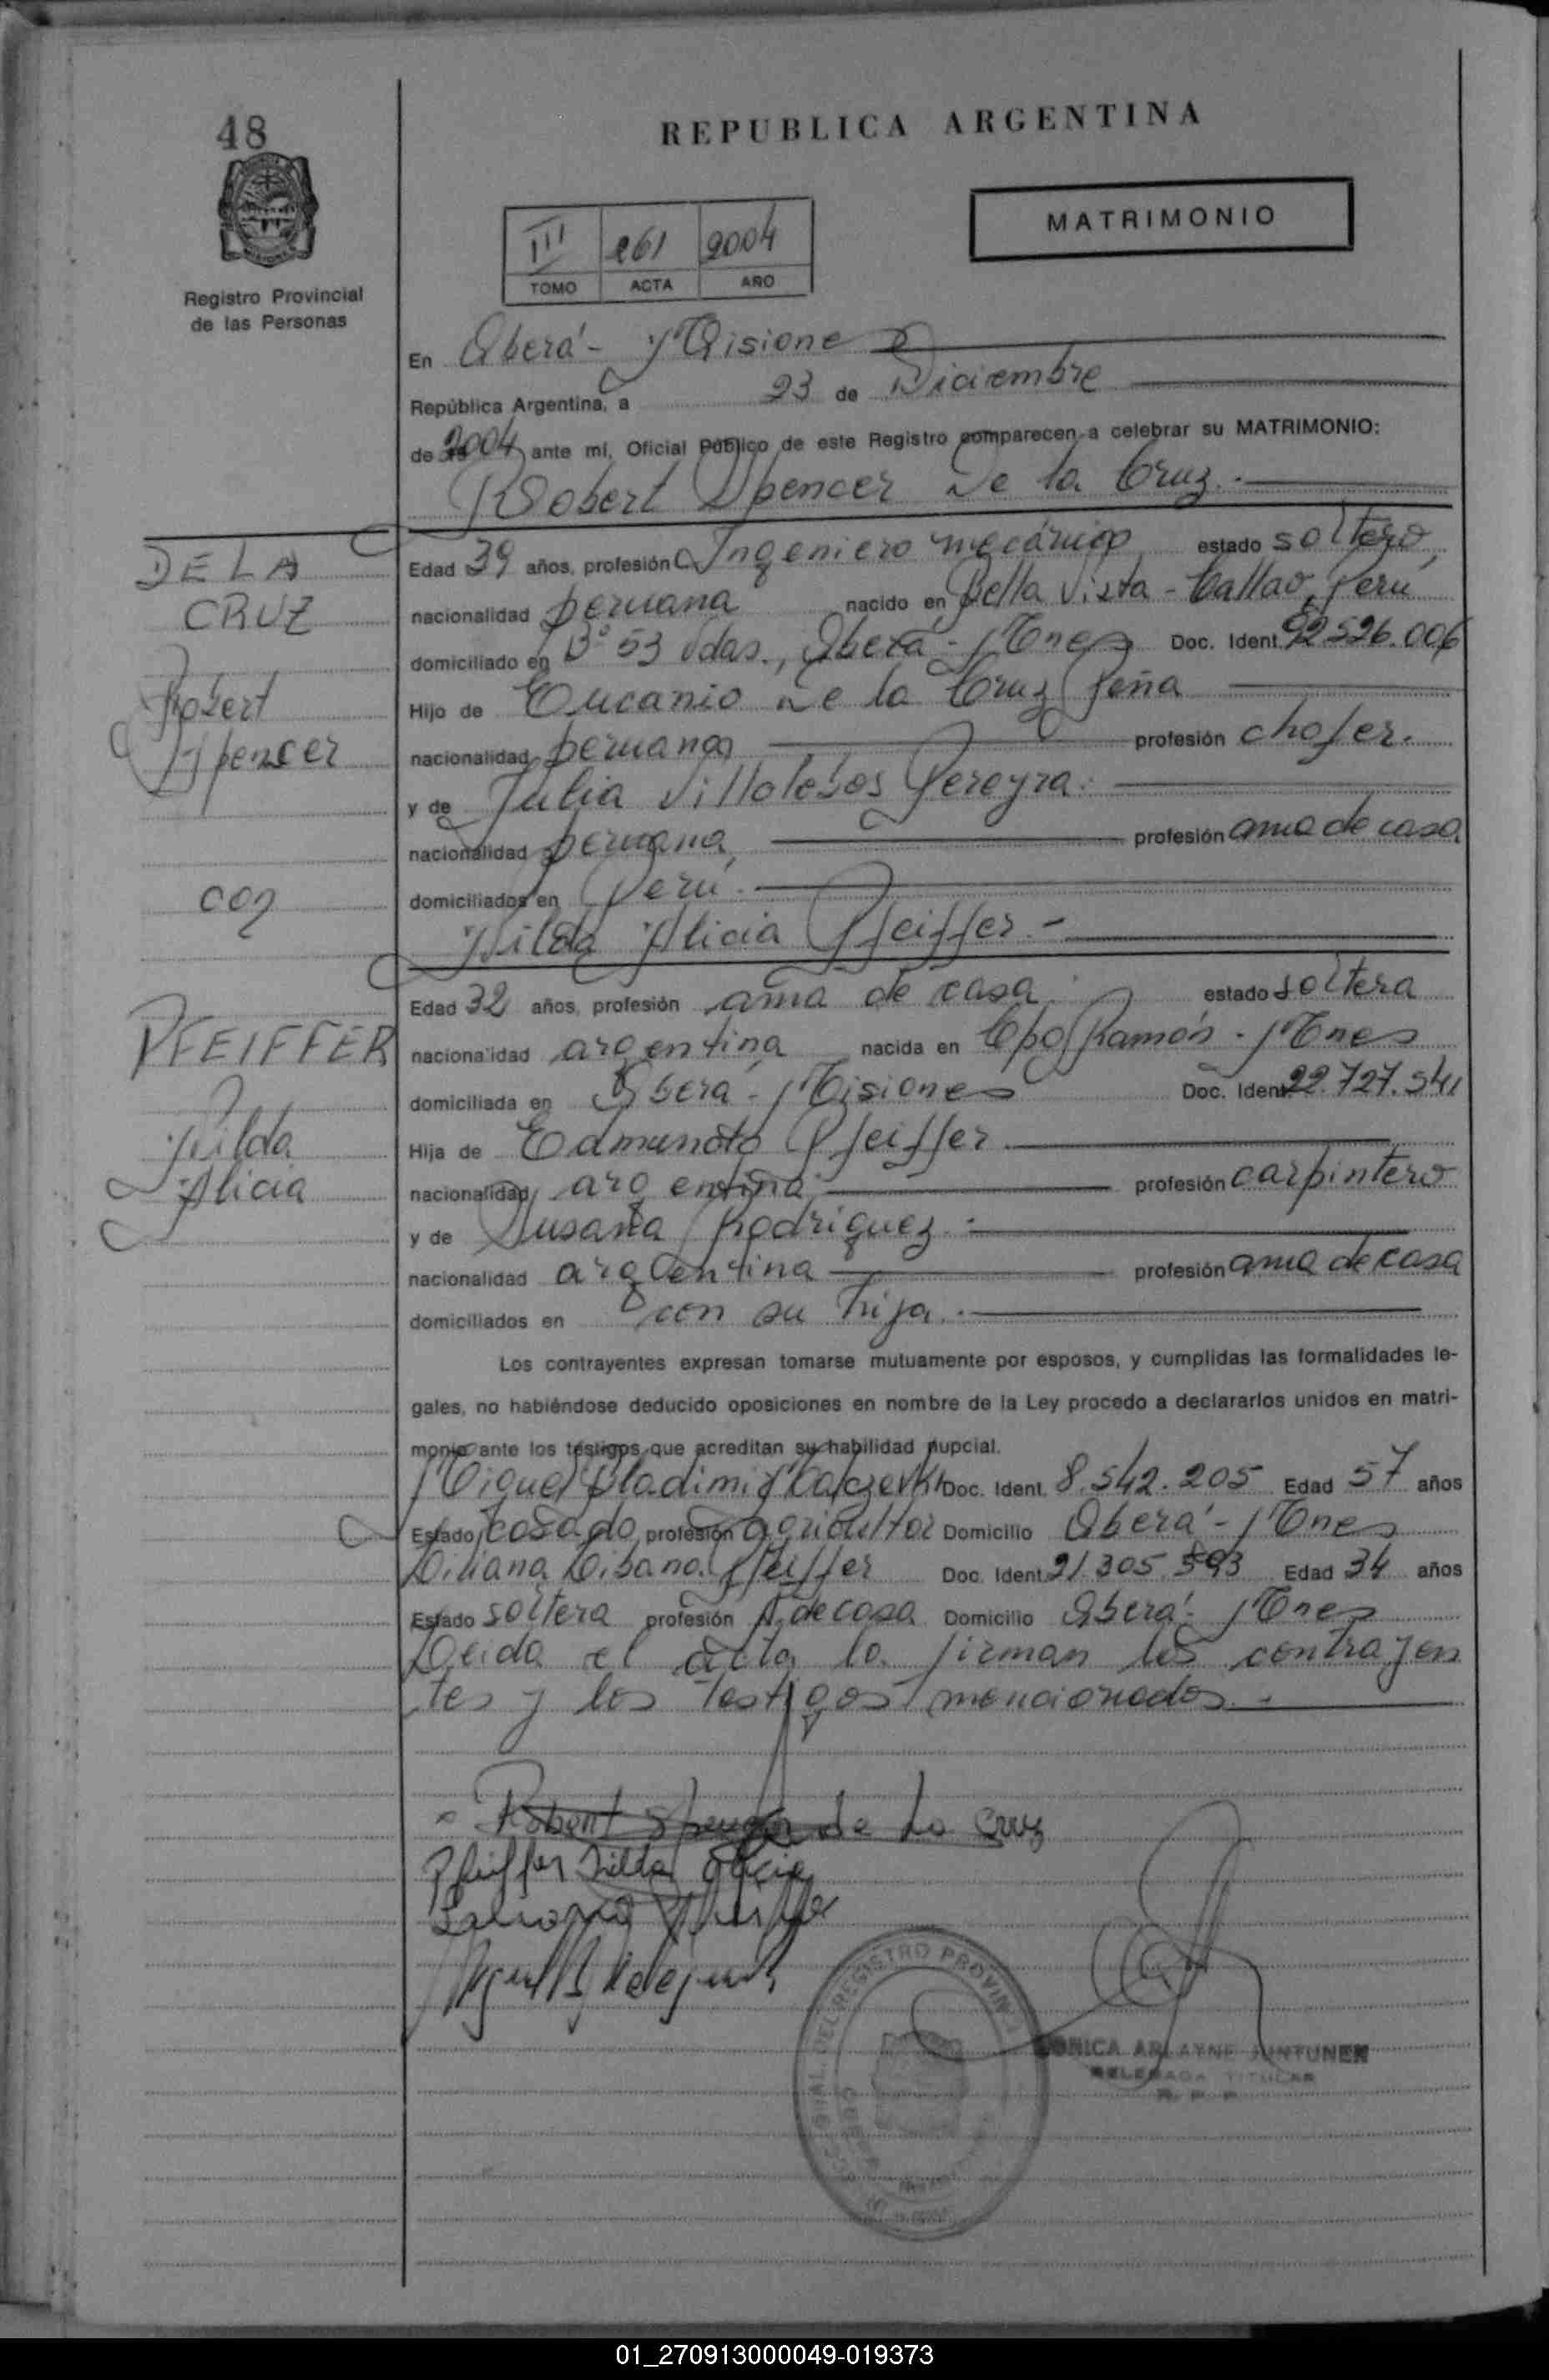 48
REPUBLICA ARGENTINA
MATRIMONIO
III 261 2004
TOMO ACTA AÑO
Registro Provincial
de las Personas
En Oberá - Misiones
República Argentina, a 23 de Diciembre
de 2004 ante mi, Oficial Público de este Registro comparecen a celebrar su MATRIMONIO:
Robert Spencer De la Cruz.
DE LA
CRUZ
Robert
Spencer
con
PFEIFFER
Hilda
Alicia
Edad 39 años, profesión Ingeniero mecánico estado soltero,
nacionalidad peruana nacido en Bella Vista - Callao, Perú
domiciliado en B° 53 Vdas., Oberá - Mnes Doc. Ident. 92.526.006
Hijo de De la Cruz Peña
nacionalidad peruana profesión chofer.
y de Julia Villalobos Pereyra.
nacionalidad peruana, profesión ama de casa
domiciliados en Perú.
Hilda Alicia Pfeiffer.-
Edad 32 años, profesión ama de casa estado soltera
nacionalidad argentina nacida en Cpo Ramón - Mnes
domiciliada en Oberá - Misiones Doc. Ident. 22.727.541
Hija de Edmundo Pfeiffer
nacionalidad argentina profesión carpintero
y de Susana Rodriguez.
nacionalidad argentina profesión ama de casa
domiciliados en con su hija.
Los contrayentes expresan tomarse mutuamente por esposos, y cumplidas las formalidades le-
gales, no habiéndose deducido oposiciones en nombre de la Ley procedo a declararlos unidos en matri-
monio ante los testigos que acreditan su habilidad nupcial.
Miguel Vladimir Doc. Ident. 8.542.205 Edad 57 años
Estado casado profesión agricultor Domicilio Oberá - Mnes
Pfeiffer Doc. Ident. 21.305.593 Edad 34 años
Estado soltera profesión A. de casa Domicilio Oberá - Mnes
Leida el acta la firman los contrayen
tes y los testigos mencionados.-
Robert Spencer de La Cruz
Pfeiffer Hilda Alicia
DEL REGISTRO PROVINCIAL
ARLAYNE
DELEGADA TITULAR
R. P. P.
01_270913000049-019373